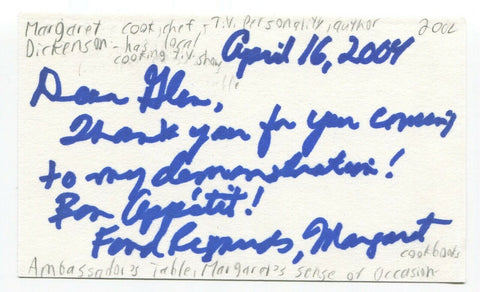 Margaret cook, chef, - T.V. personality, author 2002
Dickenson - has local
cooking T.V. show
April 16, 2004
Dear Glen,
Thank you for your coming
to my demonstration!
Bon Appétit!
Fond Regards, Margaret
cookbooks
Ambassador's Table, Margaret's sense of Occasion